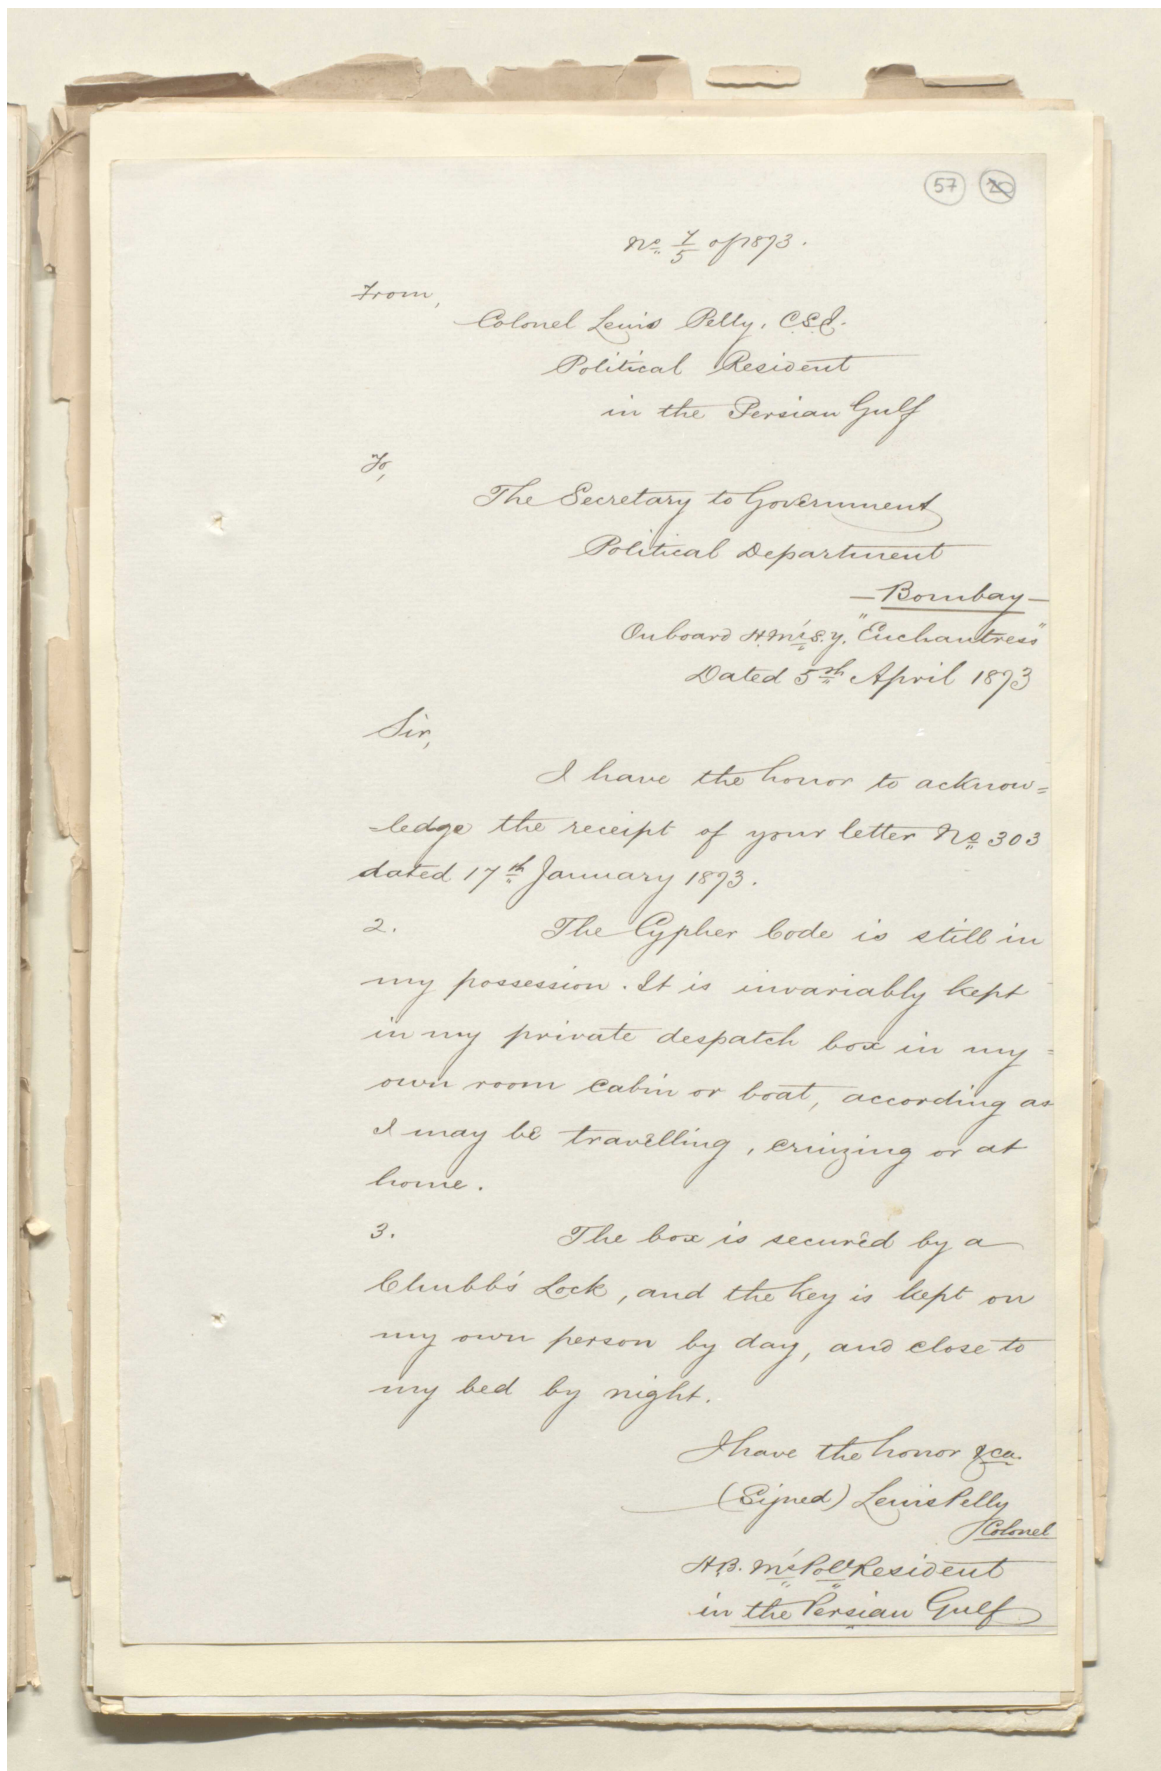 57 20
No 7/5 of 1873.
From,
Colonel Lewis Pelly, C.S.I.
Political Resident
in the Persian Gulf
To,
The Secretary to Government
Political Department
— Bombay —
Onboard H.M's S.Y. "Enchantress"
Dated 5th April 1873
Sir,
I have the honor to acknow=
=ledge the receipt of your letter No 303
dated 17th January 1873.
2. The Cypher Code is still in
my possession. It is invariably kept
in my private despatch box in my
own room cabin or boat, according as
I may be travelling, cruizing or at
home.
3. The box is secured by a
Chubb's Lock, and the key is kept on
my own person by day, and close to
my bed by night.
I have the honor &ca.
(Signed) Lewis Pelly
Colonel
H.B. M's Poll Resident
in the Persian Gulf